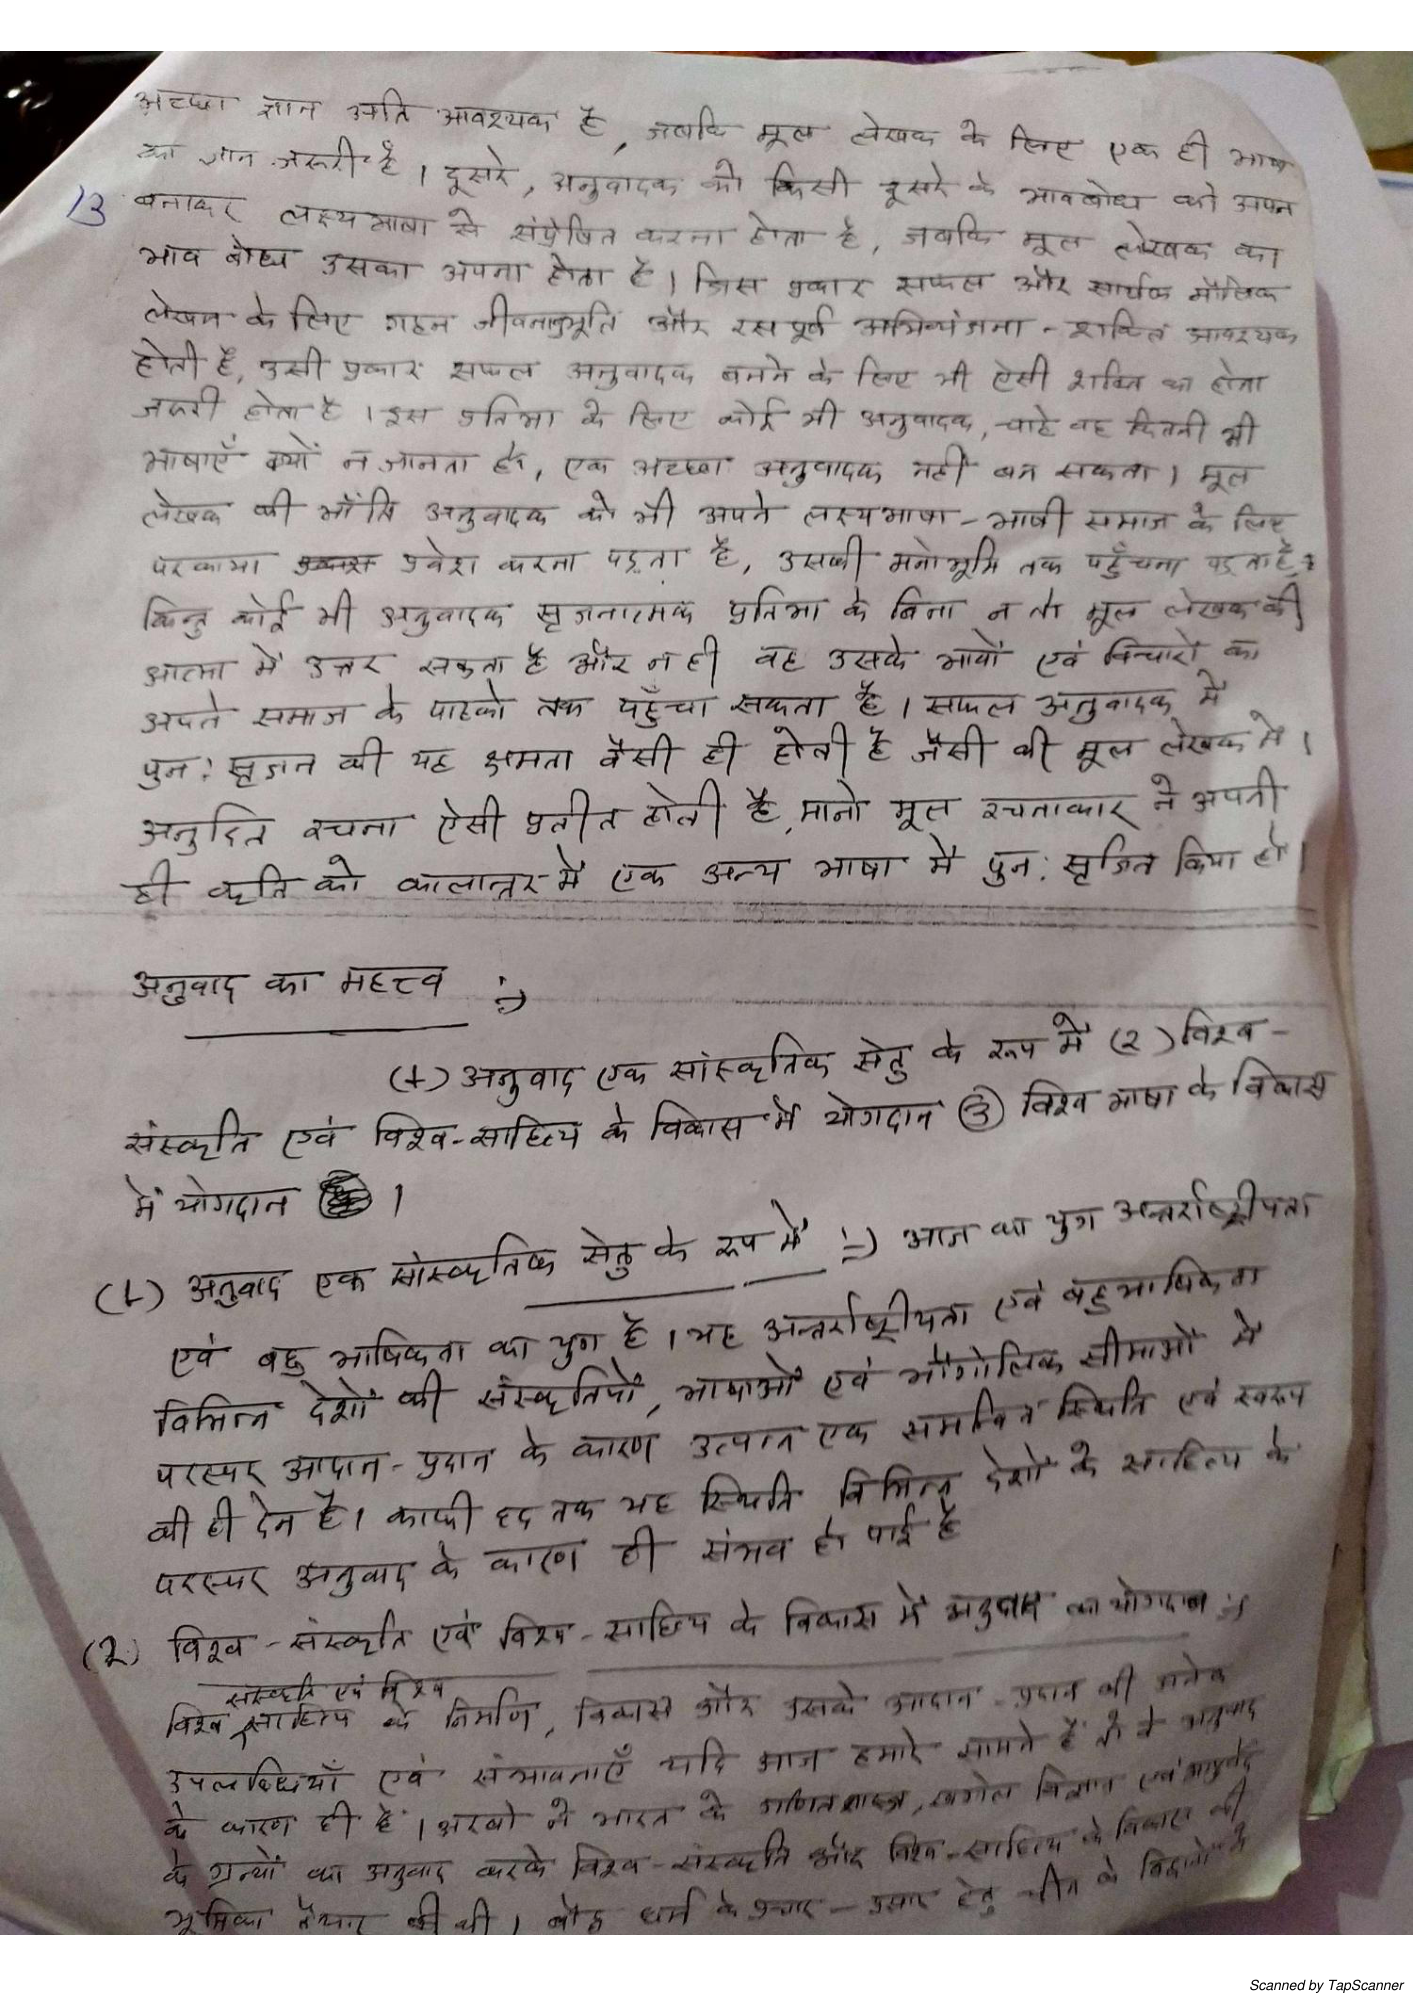 अच्छा ज्ञान अति आवश्यक है, जबकि मूल लेखक के लिए एक ही भाषा
का ज्ञान जरूरी है। दूसरे, अनुवादक को किसी दूसरे के भावबोध को अपना
13 बनाकर लक्ष्यभाषा से संप्रेषित करना होता है, जबकि मूल लेखक का
भाव बोध उसका अपना होता है। जिस प्रकार सफल और सार्थक मौलिक
लेखन के लिए गहन जीवनानुभूति और रसपूर्ण अभिव्यंजना-शक्ति आवश्यक
होती है, उसी प्रकार सफल अनुवादक बनने के लिए भी ऐसी शक्ति का होना
जरूरी होता है। इस प्रतिभा के लिए कोई भी अनुवादक, चाहे वह कितनी भी
भाषाएँ क्यों न जानता हो, एक अच्छा अनुवादक नहीं बन सकता। मूल
लेखक की भाँति अनुवादक को भी अपने लक्ष्यभाषा-भाषी समाज के लिए
परकाया प्रवेश करना पड़ता है, उसकी मनोभूमि तक पहुँचना पड़ता है।
किन्तु कोई भी अनुवादक सृजनात्मक प्रतिभा के बिना न तो मूल लेखक की
आत्मा में उत्तर सकता है और न ही वह उसके भावों एवं विचारों का
अपने समाज के पाठको तक पहुँचा सकता है। सफल अनुवादक में
पुन: सृजन की यह क्षमता वैसी ही होती है जैसी की मूल लेखक में।
अनुदित रचना ऐसी प्रतीत होती है, मानो मूल रचनाकार ने अपनी
ही कृति को कालान्तर में एक अन्य भाषा में पुन: सृजित किया हो।
अनुवाद का महत्त्व :-)
(1) अनुवाद एक सांस्कृतिक सेतु के रूप में (2) विश्व-
संस्कृति एवं विश्व-साहित्य के विकास में योगदान (3) विश्व भाषा के विकास
में योगदान ।
(1) अनुवाद एक सांस्कृतिक सेतु के रूप में :-) आज का युग अन्तर्राष्ट्रीयता
एवं बहु भाषिकता का युग है। यह अन्तर्राष्ट्रीयता एवं बहुभाषिकता
विभिन्न देशों की संस्कृतियों, भाषाओं एवं भौगोलिक सीमाओं में
परस्पर आदान-प्रदान के कारण उत्पन्न एक समन्वित स्थिति एवं स्वरूप
की ही देन है। काफी हद तक यह स्थिति विभिन्न देशों के साहित्य के
परस्पर अनुवाद के कारण ही संभव हो पाई है
(2) विश्व-संस्कृति एवं विश्व-साहित्य के विकास में अनुवाद का योगदान :-)
संस्कृति एवं विश्व
विश्व साहित्य के निर्माण, विकास और उसके आदान-प्रदान की अनेक
उपलब्धियाँ एवं संभावनाएँ यदि आज हमारे सामने हैं तो वे अनुवाद
के कारण ही हैं। अरबो ने भारत के गणितशास्त्र, खगोल विज्ञान एवं आयुर्वेद
के ग्रन्थों का अनुवाद करके विश्व-संस्कृति और विश्व-साहित्य के विकास की
भूमिका तैयार की थी। बौद्ध धर्म के प्रचार-प्रसार हेतु चीन के विद्वानों ने
Scanned by TapScanner